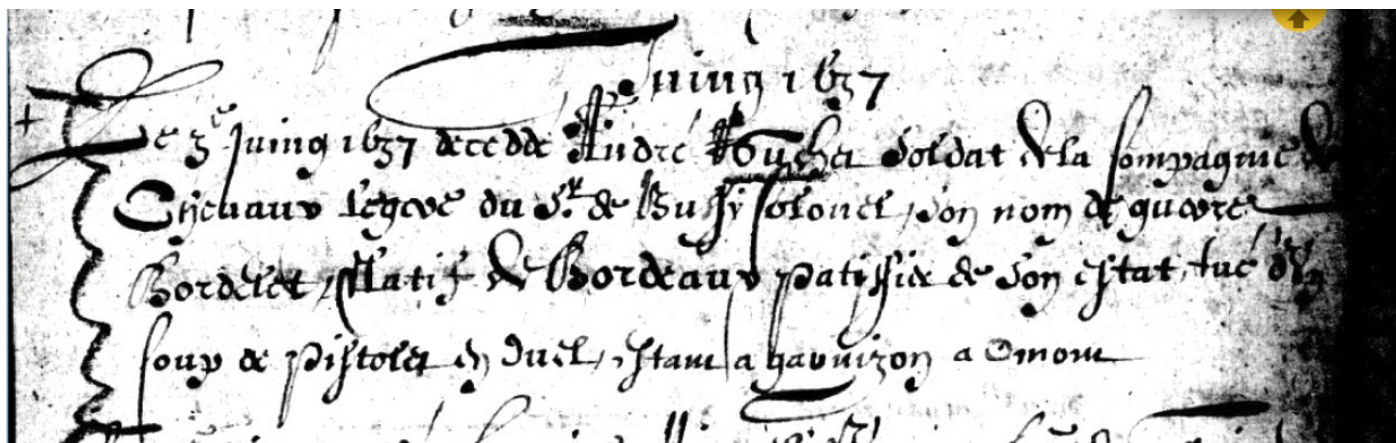 Juing 1637
Le 3e Juing 1637 decedde André soldat de la compagnie de
Chevaux legers du Sr. de Bussy Colonel, son nom de guerre
Bordelet, Natif de Bordeaux patissier de son estat, tué d'un
coup de pistolet en duel, estant a garnizon a Omont